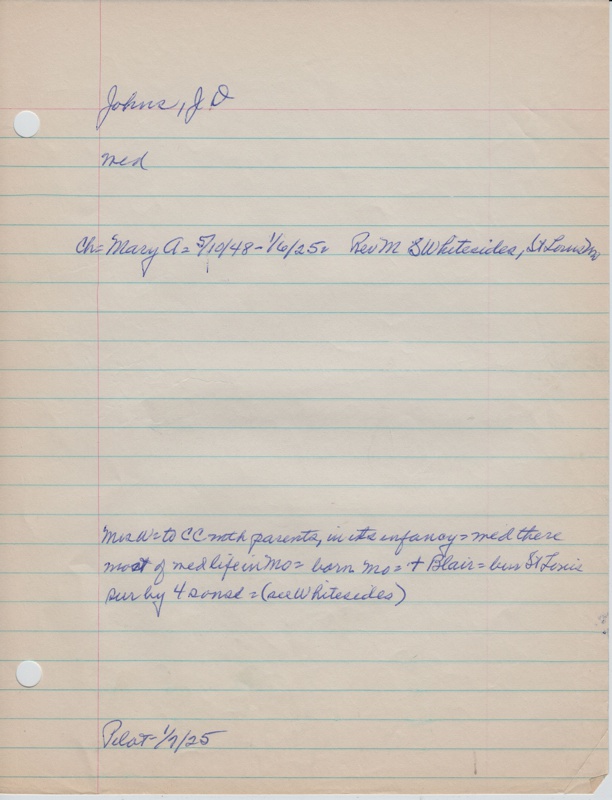 Johns, J D
med
Ch= Mary A= 5/10/48-1/6/25 Rev M S Whitesides, St Louis Mo
Mrs W= to CC with parents, in its infancy= med there
most of med life in Mo= born Mo= + Blair= bur St Louis
sur by 4 sons = (see Whitesides)
Pilot-1/7/25